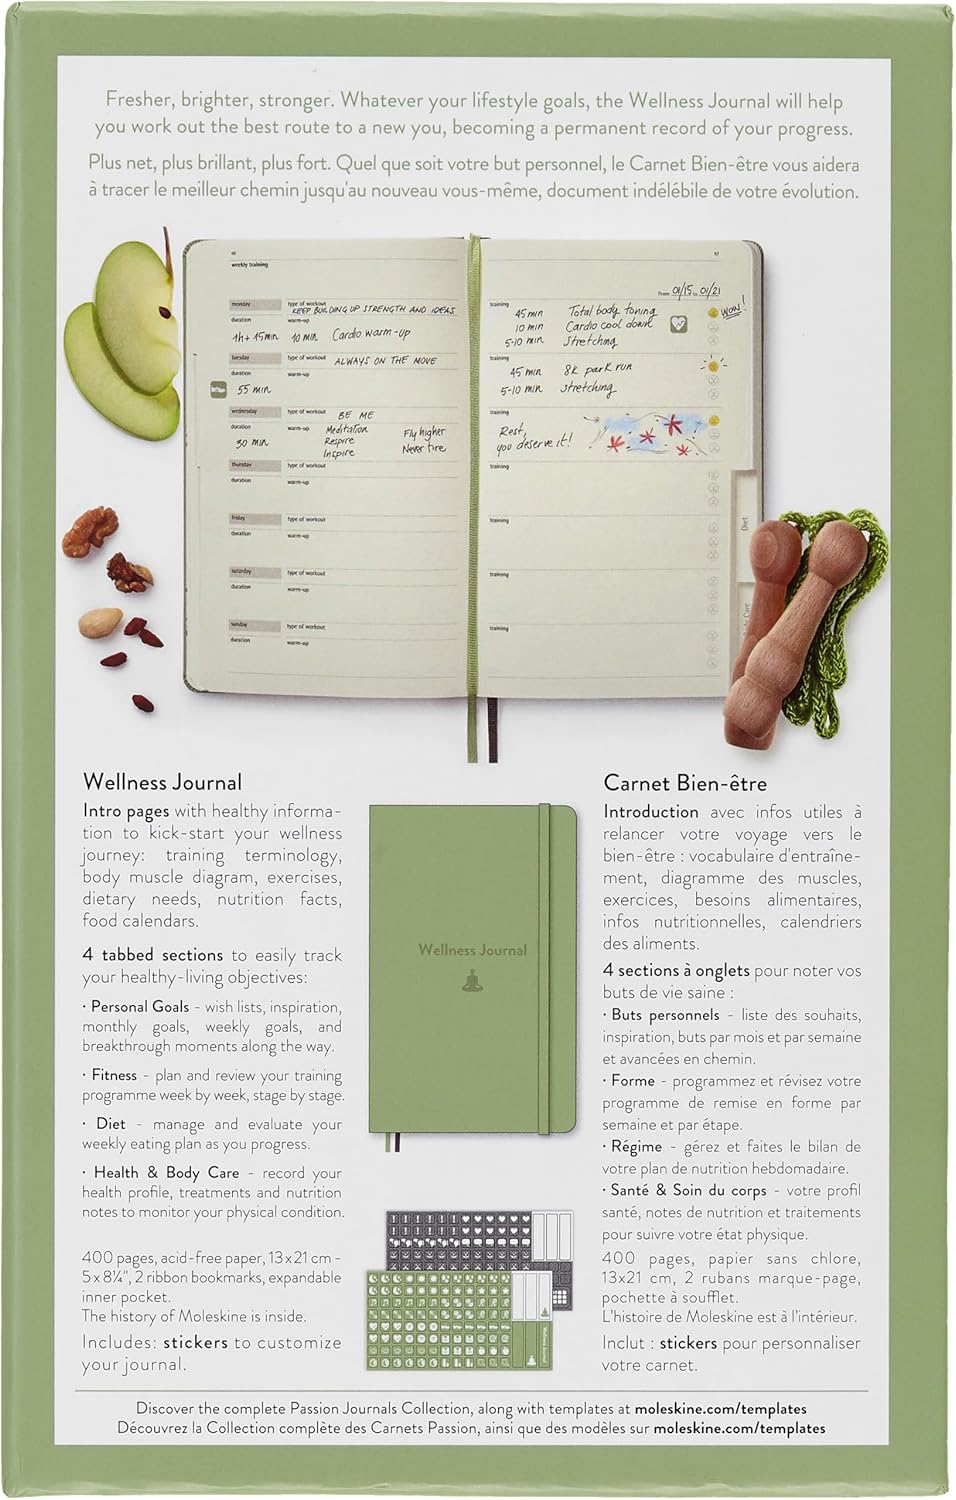 Fresher, brighter, stronger. Whatever your lifestyle goals, the Wellness Journal will help
you work out the best route to a new you, becoming a permanent record of your progress.
Plus net, plus brillant, plus fort. Quel que soit votre but personnel, le Carnet Bien-être vous aidera
à tracer le meilleur chemin jusqu'au nouveau vous-même, document indélébile de votre évolution.
weekly training
monday
type of workout
KEEP BUILDING UP STRENGTH AND IDEAS
duration
warm-up
1h + 15min
10 min
Cardio warm-up
tuesday
type of workout
ALWAYS ON THE MOVE
duration
warm-up
55 min
wednesday
type of workout
BE ME
duration
warm-up
30 min
Meditation
Respire
Inspire
Fly higher
Never tire
thursday
type of workout
duration
warm-up
friday
type of workout
duration
warm-up
saturday
type of workout
duration
warm-up
sunday
type of workout
duration
warm-up
57
from 01/15 to 01/21
training
45 min Total body toning
10 min Cardio cool down
5-10 min Stretching
WOW!
training
45 min 8k park run
5-10 min stretching
training
Rest,
you deserve it!
training
training
training
training
Diet
Care
Wellness Journal
Intro pages with healthy informa-
tion to kick-start your wellness
journey: training terminology,
body muscle diagram, exercises,
dietary needs, nutrition facts,
food calendars.
4 tabbed sections to easily track
your healthy-living objectives:
· Personal Goals - wish lists, inspiration,
monthly goals, weekly goals, and
breakthrough moments along the way.
· Fitness - plan and review your training
programme week by week, stage by stage.
· Diet - manage and evaluate your
weekly eating plan as you progress.
· Health & Body Care - record your
health profile, treatments and nutrition
notes to monitor your physical condition.
400 pages, acid-free paper, 13x21 cm -
5x8¼", 2 ribbon bookmarks, expandable
inner pocket.
The history of Moleskine is inside.
Includes: stickers to customize
your journal.
Wellness Journal
Wellness Journal
Carnet Bien-être
Introduction avec infos utiles à
relancer votre voyage vers le
bien-être : vocabulaire d'entraîne-
ment, diagramme des muscles,
exercices, besoins alimentaires,
infos nutritionnelles, calendriers
des aliments.
4 sections à onglets pour noter vos
buts de vie saine :
· Buts personnels - liste des souhaits,
inspiration, buts par mois et par semaine
et avancées en chemin.
· Forme - programmez et révisez votre
programme de remise en forme par
semaine et par étape.
· Régime - gérez et faites le bilan de
votre plan de nutrition hebdomadaire.
· Santé & Soin du corps - votre profil
santé, notes de nutrition et traitements
pour suivre votre état physique.
400 pages, papier sans chlore,
13x21 cm, 2 rubans marque-page,
pochette à soufflet.
L'histoire de Moleskine est à l'intérieur.
Inclut : stickers pour personnaliser
votre carnet.
Discover the complete Passion Journals Collection, along with templates at moleskine.com/templates
Découvrez la Collection complète des Carnets Passion, ainsi que des modèles sur moleskine.com/templates